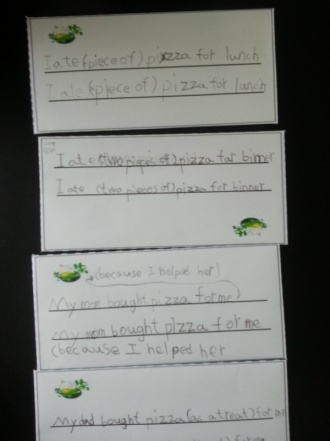 I ate (piece of) pizza for lunch
I ate (piece of) pizza for lunch
I ate (two pieces of) pizza far binner
I ate (two pieces of) pizza for binner
(because I helped her)
My mom bought pizza for me
My mom bought pizza for me
(because I helped her
My dad bought pizza (as a treat) for me